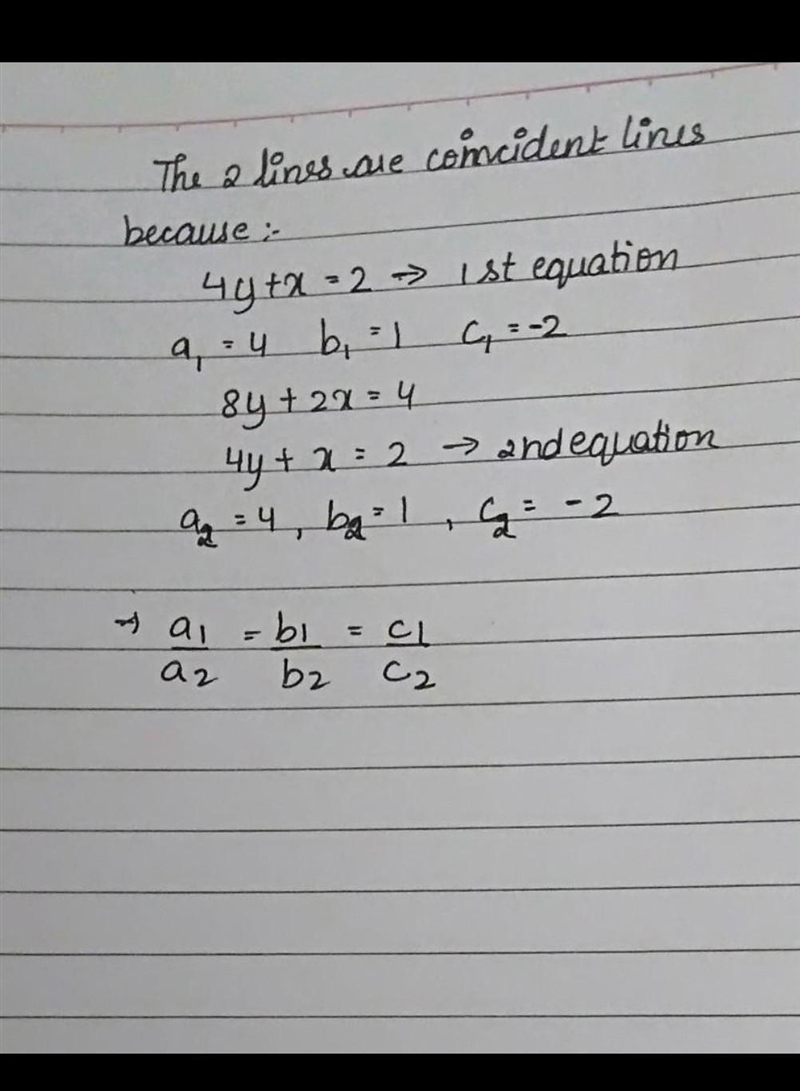 The 2 lines are coincident lines
because :-
4y+x = 2 → 1st equation
a₁ = 4 b₁ = 1 c₁ = -2
8y + 2x = 4
4y + x = 2 → 2nd equation
a₂ = 4 , b₂ = 1 , c₂ = - 2
→ a1/a2 = b1/b2 = c1/c2